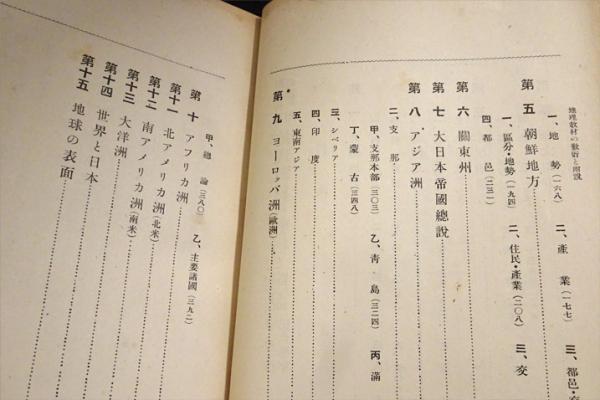 地理教材の敎授と解説
一、地勢(一六八) 二、產業(一七七) 三、都邑・交
第五 朝鮮地方
一、區分・地勢(一九四) 二、住民・產業(二〇八) 三、交
四、都邑(二三一)
第六 關東州
第七 大日本帝國總說
第八 アジア洲
二、支那
甲、支那本部(三〇三) 乙、靑島(三二四) 丙、滿
丁、蒙古(三四八)
三、シベリア
四、印度
五、東南アジア
第九 ヨーロッパ洲(歐洲)
甲、總論(三八〇) 乙、主要諸國(三九二)
第十 アフリカ洲
第十一 北アメリカ洲(北米)
第十二 南アメリカ洲(南米)
第十三 大洋洲
第十四 世界と日本
第十五 地球の表面